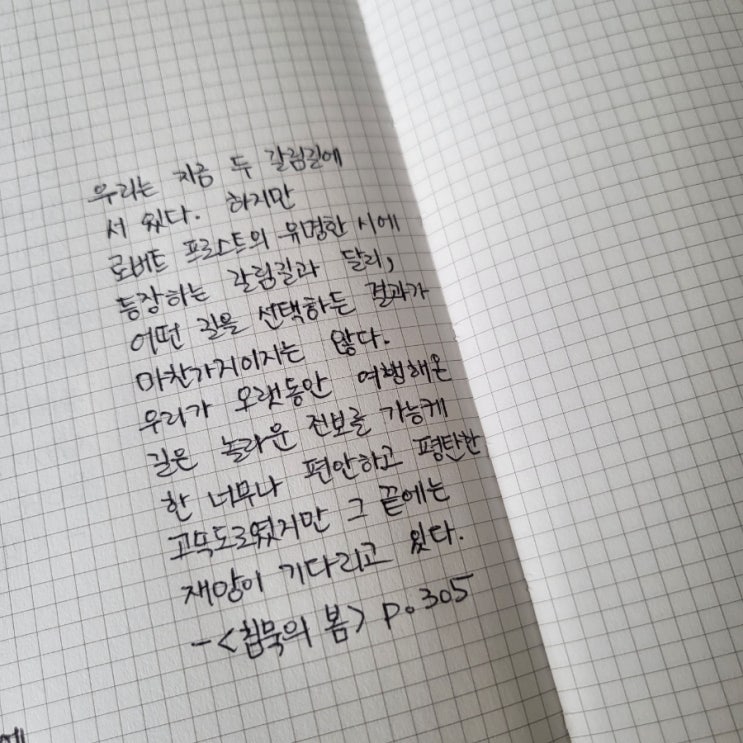 우리는 지금 두 갈림길에
서 있다. 하지만
로버트 프로스트의 유명한 시에
등장하는 갈림길과 달리,
어떤 길을 선택하든 결과가
마찬가지이지는 않다.
우리가 오랫동안 여행해온
길은 놀라운 진보를 가능케
한 너무나 편안하고 평탄한
고속도로였지만 그 끝에는
재앙이 기다리고 있다.
-<침묵의 봄> p.305
에